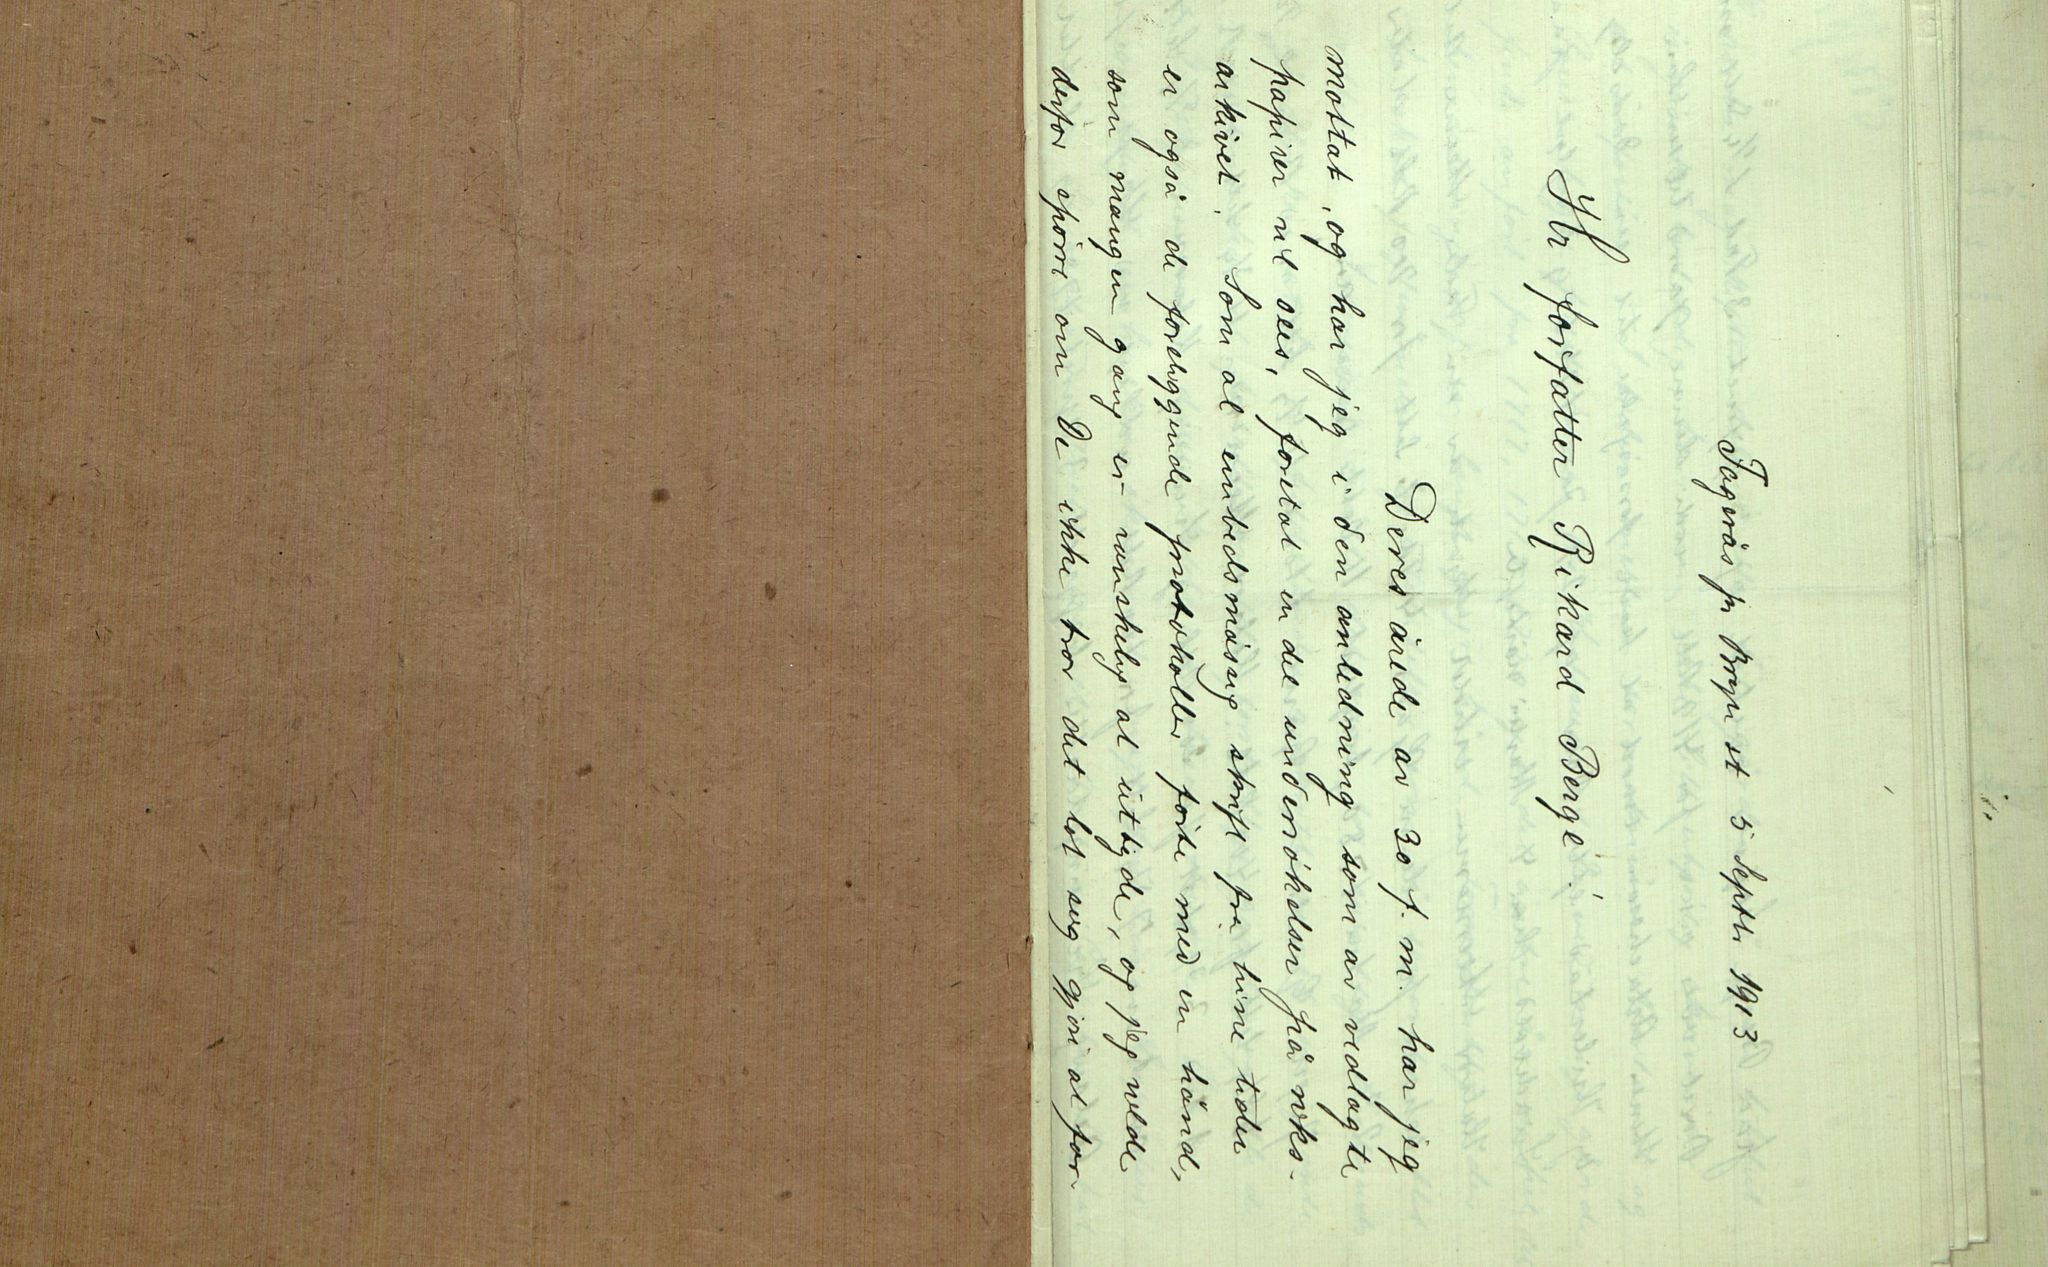 Fagerås pr Bryn st 5 Septb. 1913
Hr forfatter Rikard Berge!
Deres ærede av 30 f. m. har jeg
mottat, og har jeg i den anledning som av vedlagte
papirer vil sees, foretat en del undersøkelser på riks-
arkivet. Som al embedsmæssig skrift fra hine tider
er også de foreliggende protokoller førte med en hånd,
som mangen gang er vanskelig at uttyde, og jeg vilde
derfor spørre om De ikke tror det lot seg gjøre at for-